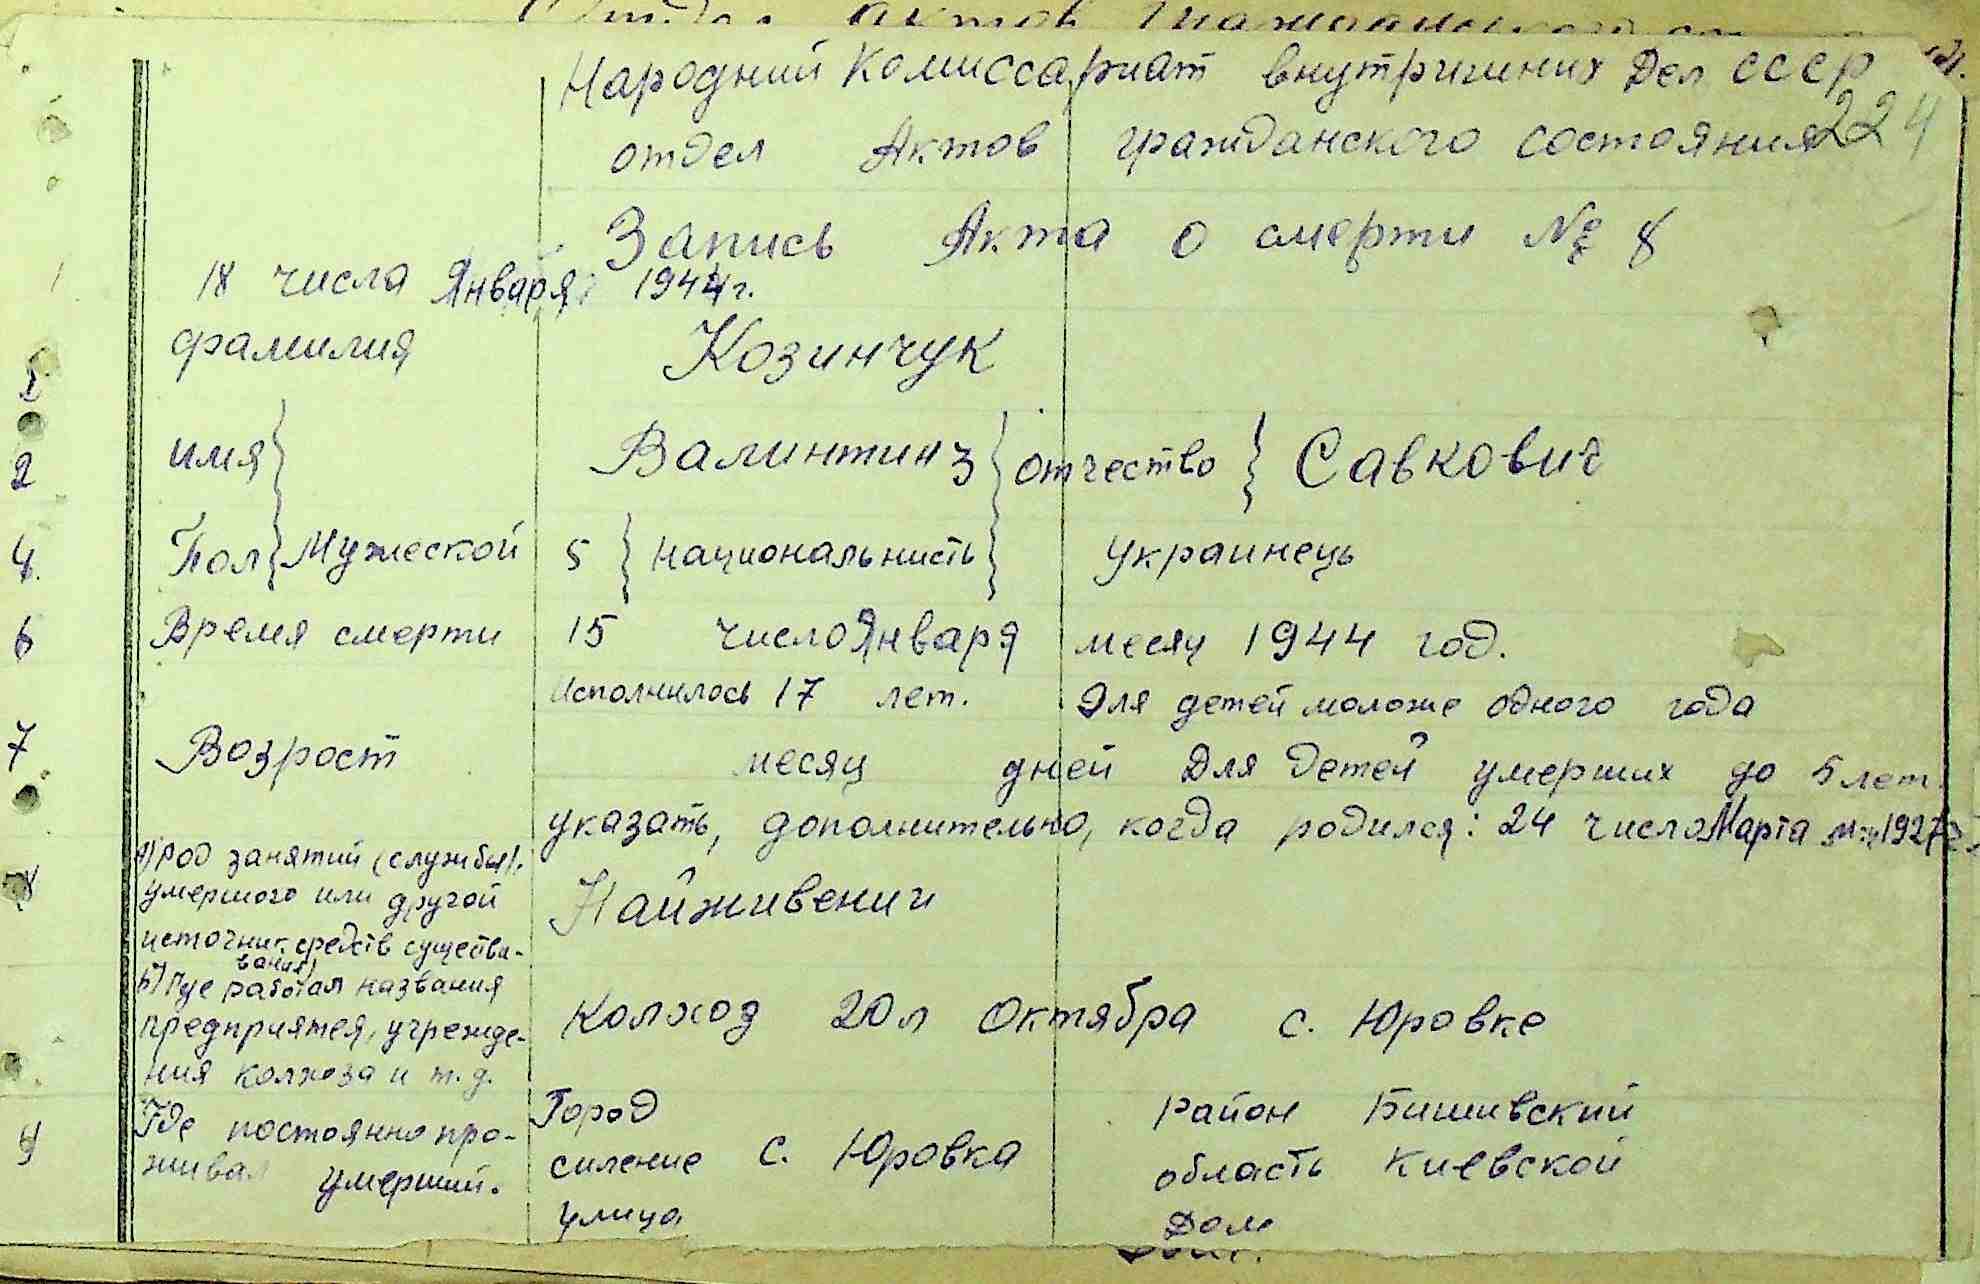 Народний Комиссариат внутришиних Дел СССР
224
отдел Актов гражданского состояния
Запись Акта о смерти № 8
18 числа Января 1944 г.
фамилия Козинчук
2 имя Валинтин 3 отчество Савкович
4. Пол Мужеской 5 национальнисть украинець
6 Время смерти 15 число Января месяц 1944 год.
Исполнилось 17 лет. Для детей моложе одного года
7 Возрост месяц дней Для детей умерших до 5 лет
указать, дополнительно, когда родился: 24 число Марта 1927
а) род занятий (службы)
умершого или другой
источник средств существо-
вания)
Найживении
б) Где работал названия
предприятея, учрежде-
ния колхоза и т.д.
Колхоз 20л Октября с. Юровке
9 Где постоянно про-
живал умерший.
Город
силение с. Юровка
улица
район Бишивский
область Киевской
Дом